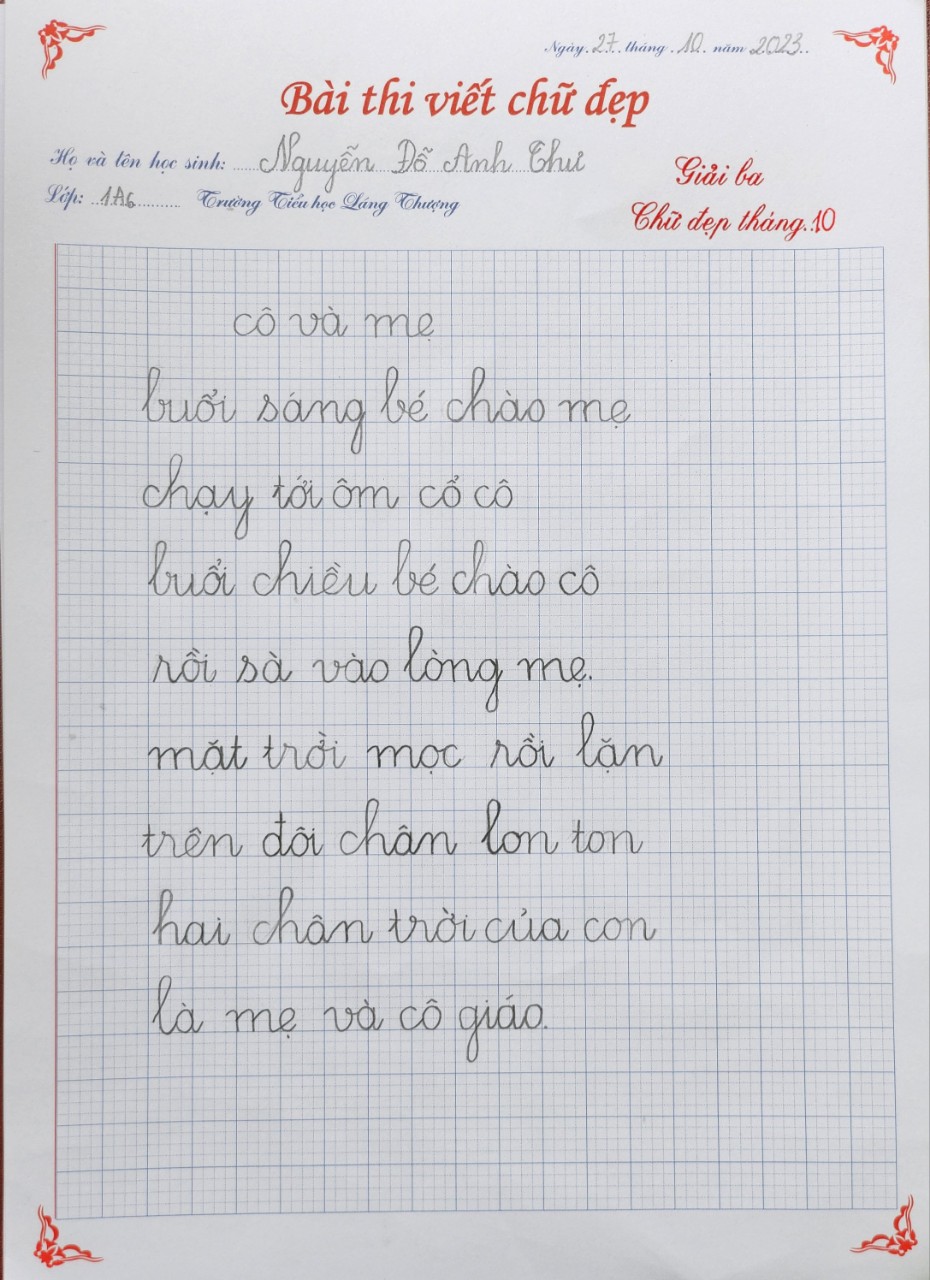 Ngày.27..tháng.10. năm 2023..
Bài thi viết chữ đẹp
Họ và tên học sinh: Nguyễn Đỗ Anh Thư
Giải ba
Lớp: 1A6 Trường Tiểu học Láng Thượng
Chữ đẹp tháng..10
cô và mẹ
buổi sáng bé chào mẹ
chạy tới ôm cổ cô
buổi chiều bé chào cô
rồi sà vào lòng mẹ.
mặt trời mọc rồi lặn
trên đôi chân lon ton
hai chân trời của con
là mẹ và cô giáo.